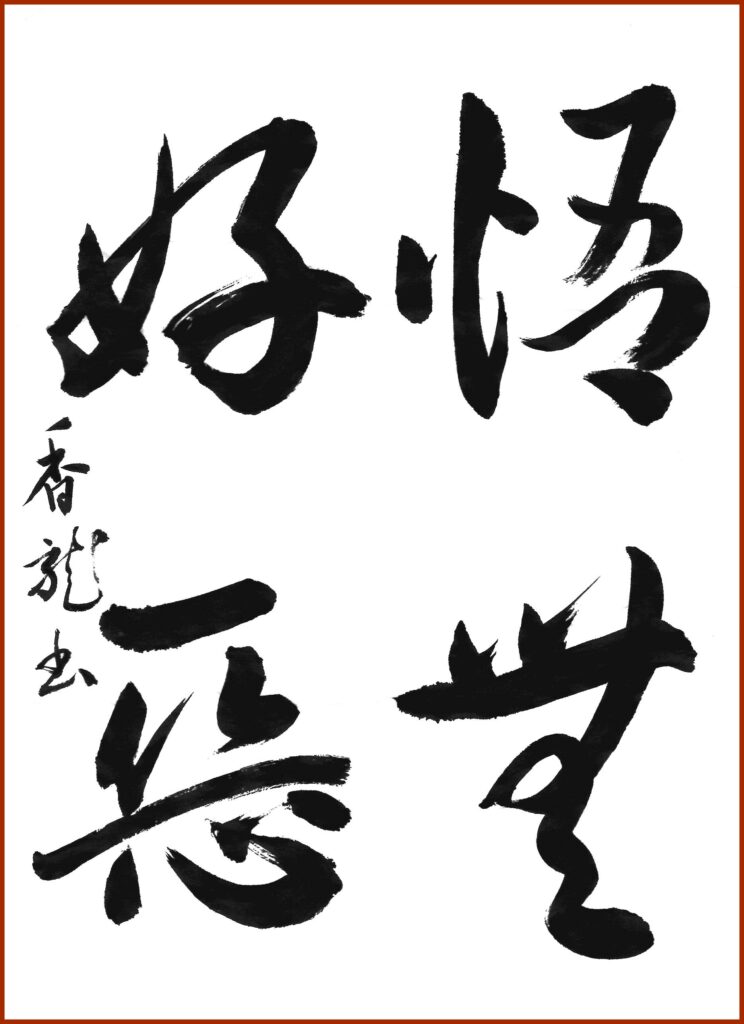 悟無
好惡
香龍書